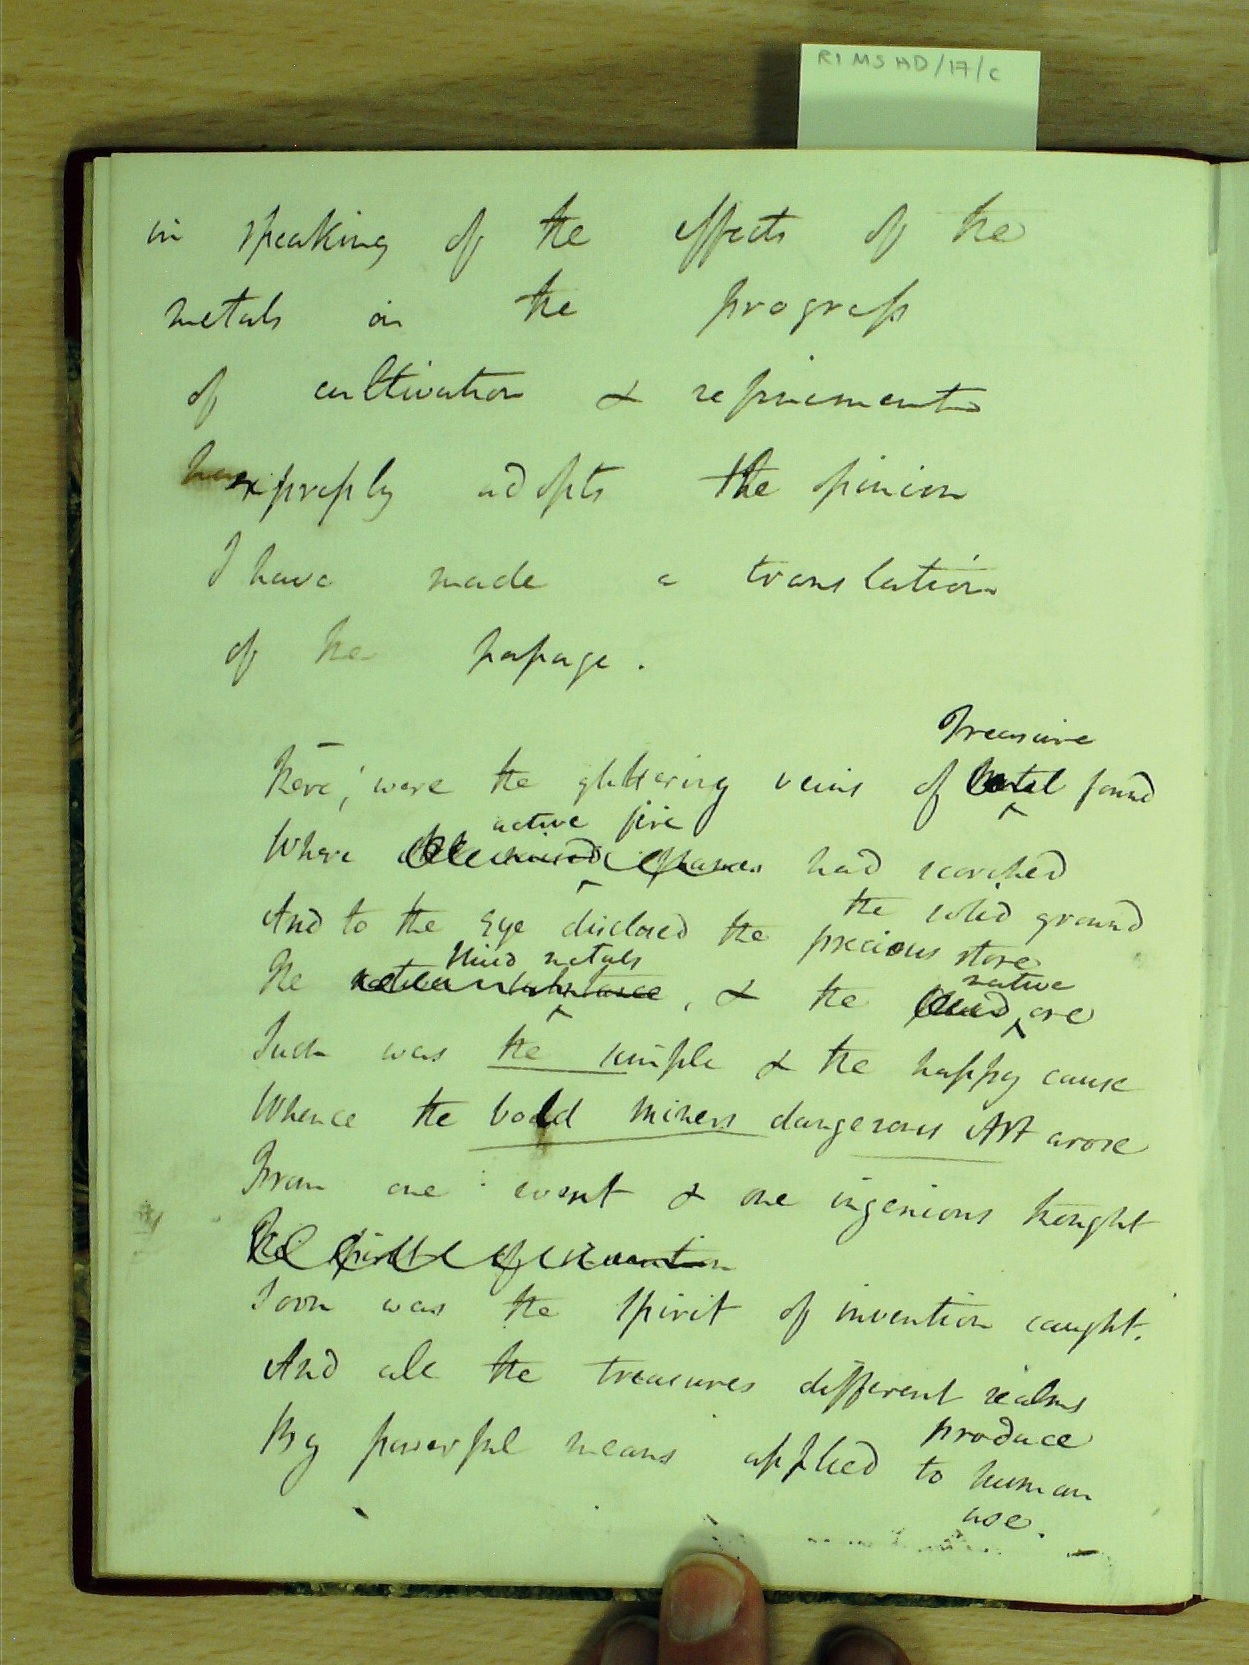 RI MS HD/17/C
in speaking of the effects of the
metals on the progress
of cultivation & refinement
expressly adopts the opinion
I have made a translation
of the passage.
Treasure
Here, were the glittering veins of metal found
active fire
Where had scorched
the solid ground
And to the Eye disclosed the precious store
fluid metals
native
The substance, & the ore
Such was the simple & the happy cause
Whence the bold miners dangerous Art arose
From one event & one ingenious thought
The spirit of invention
Soon was the spirit of invention caught.
And all the treasures different realms
produce
By powerful means applied to human
use.